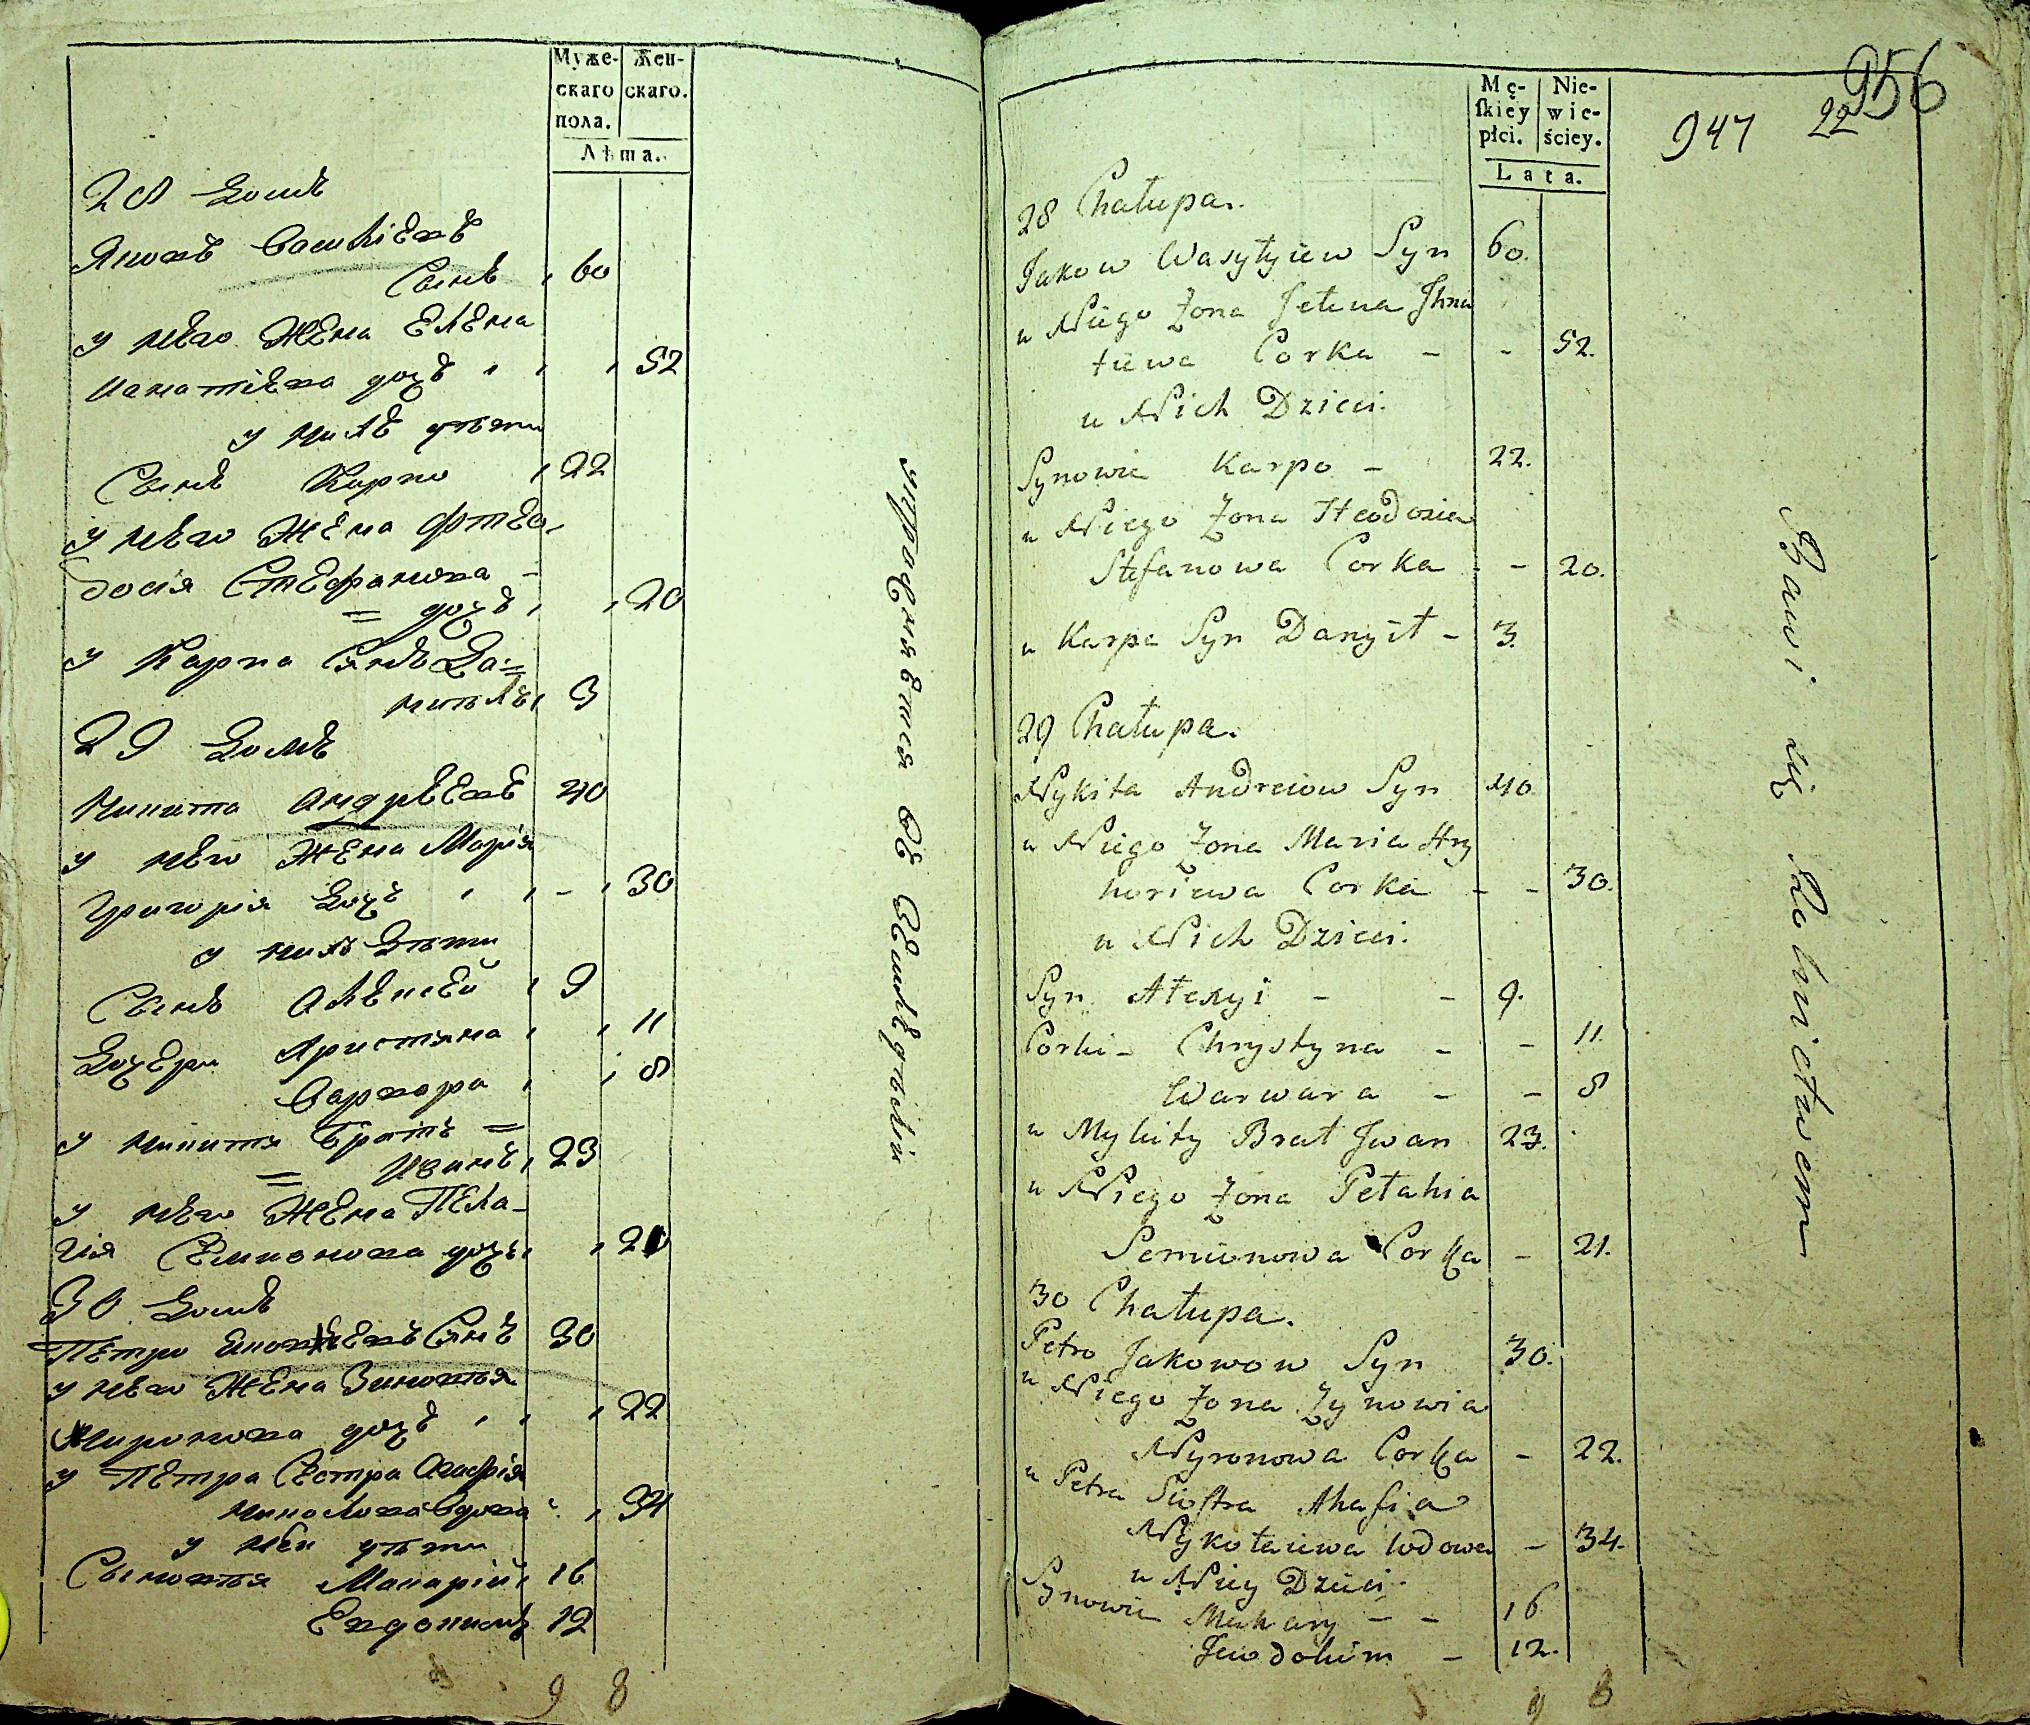 Муже-
скаго
пола.
Жен-
скаго.
Лѣта.
28 Домъ
Яковъ Василіевъ
Сынъ 60
у него Жена Елена
Игнатіева дочъ 52
у нихъ дѣти
Сынъ Карпо 22
у него Жена Фтео-
досія Стефанова
= дочъ 20
у Карпа Синъ Да=
нилъ 3
29 Домъ
Никита Андрѣевъ 40
у него Жена Марія
Григорія Дочъ - 30
у нихъ Дѣти
Сынъ Алексей 9
Дочери Христина 11
Варвора 8
у Никити Братъ =
= Иванъ 23
у него Жена Пела-
гія Семионова дочъ 21
30 Домъ
Петро Синъ 30
у него Жена Зиновія
Миронова дочъ 22
у Петра Сестра Агафія
Николова вдова 34
у ней дѣти
Синовія Макарій 16
Евдокимъ 12
9 8
упрожняется въ Земледѣліи
956
947 22
Mę-
ſkiey
płci.
Nie-
wie-
ściey.
Lata.
28 Chałupa.
Jakow Wasyłyiew Syn 60.
u Niego Żona Jełena Ihna
tiewa Corka - - 52.
u Nich Dzieci.
Synowie Karpo - 22.
u Niego Żona Fteodozia
Stefanowa Corka - - 20.
u Karpa Syn Danyił - 3.
29 Chałupa.
Nykita Andreiow Syn 40
u Niego Żona Maria Hry
horiewa Corka - - 30.
u Nich Dzieci.
Syn Ałexyi - - 9.
Corki - Chrystyna - - 11.
Warwara - - 8
u Mykity Brat Jwan 23.
u Niego Żona Pełahia
Semionowa Corka - 21.
30 Chałupa.
Petro Jakowow Syn 30.
u Niego Żona Zynowia
Nyronowa Corka - 22.
u Petra Siostra Ahafia
Nykołaiewa Wdowa - 34.
u Niey Dzieci.
Synowie Makary - - 16
Jewdokim - 12.
9 8
Bawi się Rolnictwem